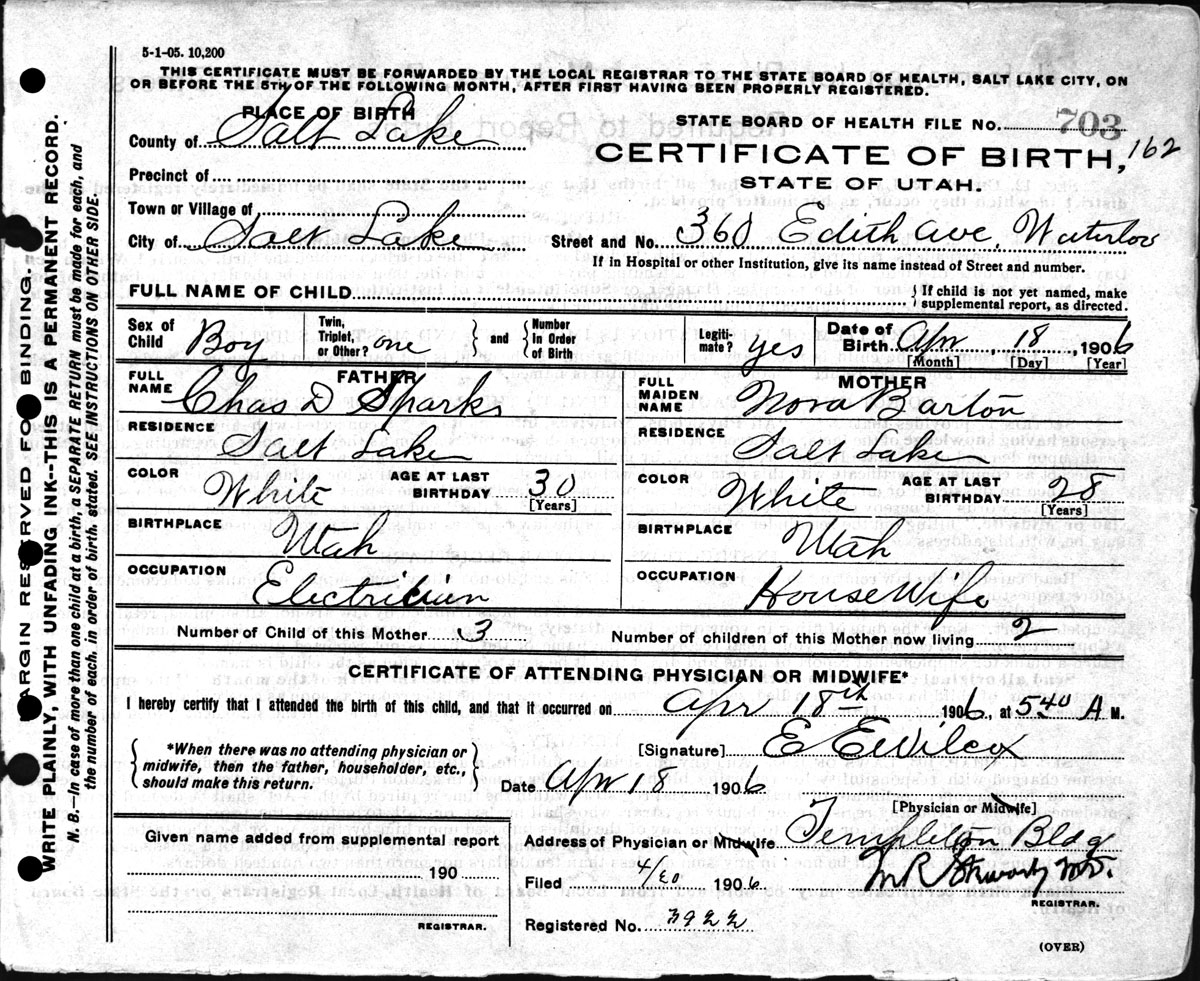 5-1-05. 10,200
THIS CERTIFICATE MUST BE FORWARDED BY THE LOCAL REGISTRAR TO THE STATE BOARD OF HEALTH, SALT LAKE CITY, ON
OR BEFORE THE 5TH OF THE FOLLOWING MONTH, AFTER FIRST HAVING BEEN PROPERLY REGISTERED.
PLACE OF BIRTH
County of Salt Lake
Precinct of
Town or Village of
City of Salt Lake
STATE BOARD OF HEALTH FILE No. 703
162
CERTIFICATE OF BIRTH,
STATE OF UTAH.
Street and No. 360 Edith Ave, Waterloo
If in Hospital or other Institution, give its name instead of Street and number.
FULL NAME OF CHILD
{ If child is not yet named, make
supplemental report, as directed.
Sex of Child Boy
Twin, Triplet, or Other? one } and { Number In Order of Birth
Legiti-mate? yes
Date of Birth Apr 18, 1906
[Month] [Day] [Year]
FATHER
FULL NAME Chas D Sparks
RESIDENCE Salt Lake
COLOR White AGE AT LAST BIRTHDAY 30
[Years]
BIRTHPLACE Utah
OCCUPATION Electricium
MOTHER
FULL MAIDEN NAME Nora Barton
RESIDENCE Salt Lake
COLOR White AGE AT LAST BIRTHDAY 28
[Years]
BIRTHPLACE Utah
OCCUPATION HouseWife
Number of Child of this Mother 3 Number of children of this Mother now living 2
CERTIFICATE OF ATTENDING PHYSICIAN OR MIDWIFE*
I hereby certify that I attended the birth of this child, and that it occurred on Apr 18th 1906, at 5 40 A M.
{ *When there was no attending physician or
midwife, then the father, householder, etc.,
should make this return. }
[Signature] E E Wilcox
Date Apr 18 1906
[Physician or Midwife]
Address of Physician or Midwife Templeton Bldg
Filed 4/20 1906
REGISTRAR.
Registered No. 3922
(OVER)
Given name added from supplemental report
190
REGISTRAR.
MARGIN RESERVED FOR BINDING.
WRITE PLAINLY, WITH UNFADING INK--THIS IS A PERMANENT RECORD.
N. B.—In case of more than one child at a birth, a SEPARATE RETURN must be made for each, and
the number of each, in order of birth, stated. SEE INSTRUCTIONS ON OTHER SIDE.